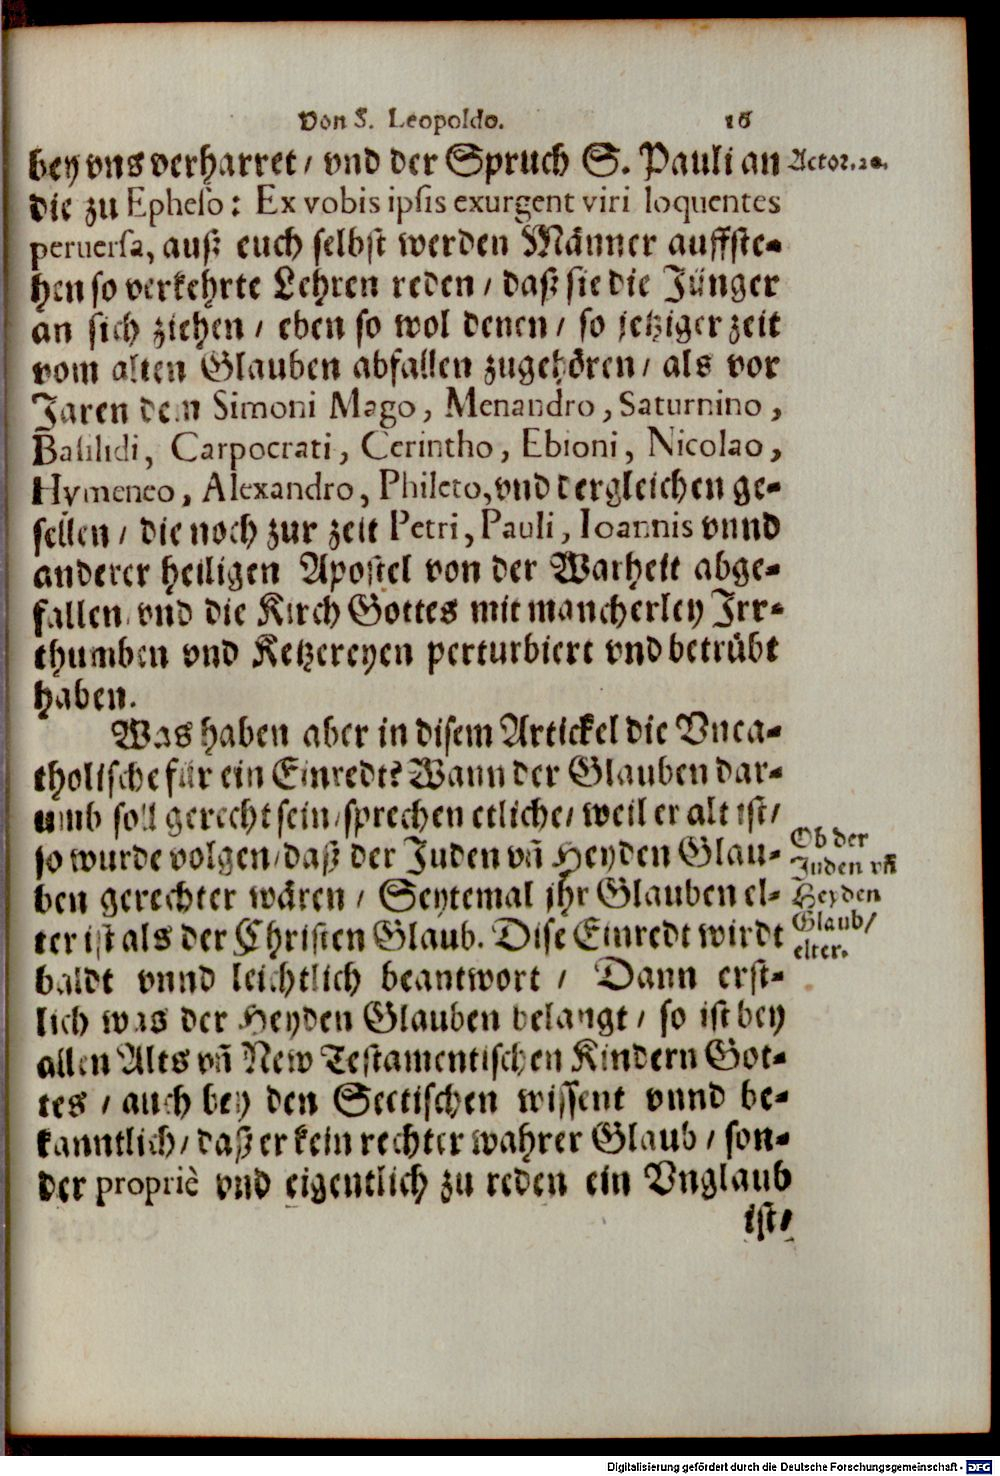 Von S. Leopoldo. 16
bey vns verharret / vnd der Spruch S. Pauli an
Actor. 20.
die zu Epheso: Ex vobis ipsis exurgent viri loquentes
peruersa, auß euch selbst werden Männer auffste-
hen so verkehrte Lehren reden / daß sie die Jünger
an sich ziehen / eben so wol denen / so jetziger zeit
vom alten Glauben abfallen zugehören / als vor
Jaren dem Simoni Mago, Menandro, Saturnino,
Basilidi, Carpocrati, Cerintho, Ebioni, Nicolao,
Hymeneo, Alexandro, Phileto, vnd dergleichen ge-
sellen / die noch zur zeit Petri, Pauli, Ioannis vnnd
anderer heiligen Apostel von der Warheit abge-
fallen / vnd die Kirch Gottes mit mancherley Irr-
thumben vnd Ketzereyen perturbiert vnd betrübt
haben.
Was haben aber in disem Artickel die Vnca-
tholische für ein Einredt? Wann der Glauben dar-
umb soll gerecht sein / sprechen etliche / weil er alt ist /
so wurde volgen / daß der Juden vñ Heyden Glau-
ben gerechter wären / Seytemal jhr Glauben el-
ter ist als der Christen Glaub. Dise Einredt wirdt
Ob der
Juden vñ
Heyden
Glaub /
elter.
baldt vnnd leichtlich beantwort / Dann erst-
lich was der Heyden Glauben belangt / so ist bey
allen Alts vñ New Testamentischen Kindern Got-
tes / auch bey den Sectischen wissent vnnd be-
kanntlich / daß er kein rechter wahrer Glaub / son-
der propriè vnd eigentlich zu reden ein Vnglaub
ist /
Digitalisierung gefördert durch die Deutsche Forschungsgemeinschaft - DFG